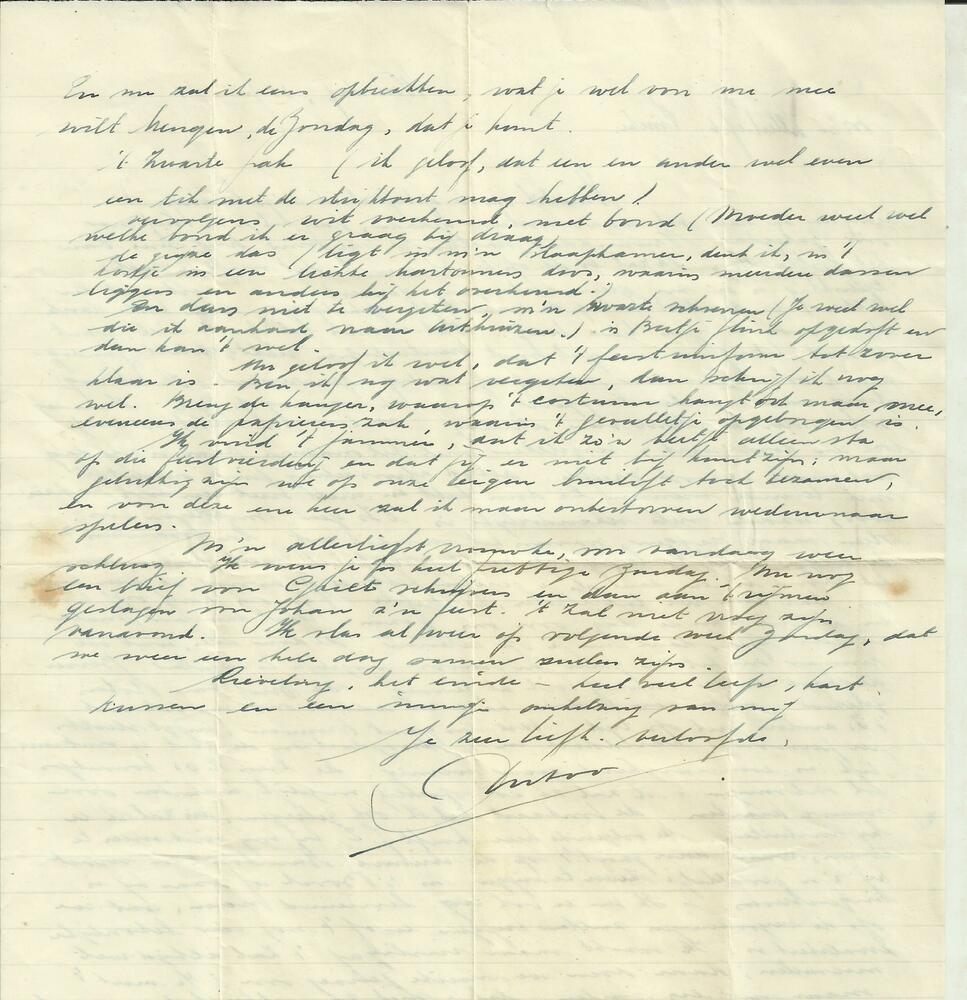 En nu zal ik eens opbiechten, wat je wel van me mee
wilt brengen, de Zondag, dat je komt.
't Zwarte pak (ik geloof, dat een en ander wel even
een tik met de strijkbout mag hebben!
vervolgens wit overhemd, met boord (Moeder weet wel
welke boord ik er graag bij draag
de grijze das (ligt in m'n slaapkamer, denk ik, in 't
kastje in een lichte kartonnen doos, waarin meerdere dassen
liggen en anders bij het overhemd.)
En dan niet te vergeten, m'n zwarte schoenen (Je weet wel
die ik aanhad naar Uithuizen.) is Bertje flink opgedoft en
dan kan 't wel.
Nu geloof ik wel, dat 't feestuniform tot zover
klaar is. Ben ik nog wat vergeten, dan schrijf ik nog
wel. Breng de hanger, waarop 't costuum hangt ook maar mee,
eveneens de papieren zak, waarin 't gevalletje opgeborgen is.
Ik vind 't jammer, dat ik zo'n beetje alleen sta
op die feestvierderij en dat jij er niet bij kunt zijn; maar
gelukkig zijn we op onze eigen bruiloft toch tezamen,
en van deze ene keer zal ik maar onbestorven weduwnaar
spelen.
M'n allerliefst vrouwke, nu vandaag weer
. Ik wens je jas heel prettige Zondag. Nu nog
een brief van schrijven en dan aan 't rijmen
geslagen van Johan z'n feest. 't Zal niet vroeg zijn
vanavond. Ik vlas al weer op volgende week Zondag, dat
we weer een hele dag samen zullen zijn.
Lieveling, het einde - heel veel liefs, hart.
kussen en een innige omhelzing van mij
Je zeer liefh. verloofde,
Anton